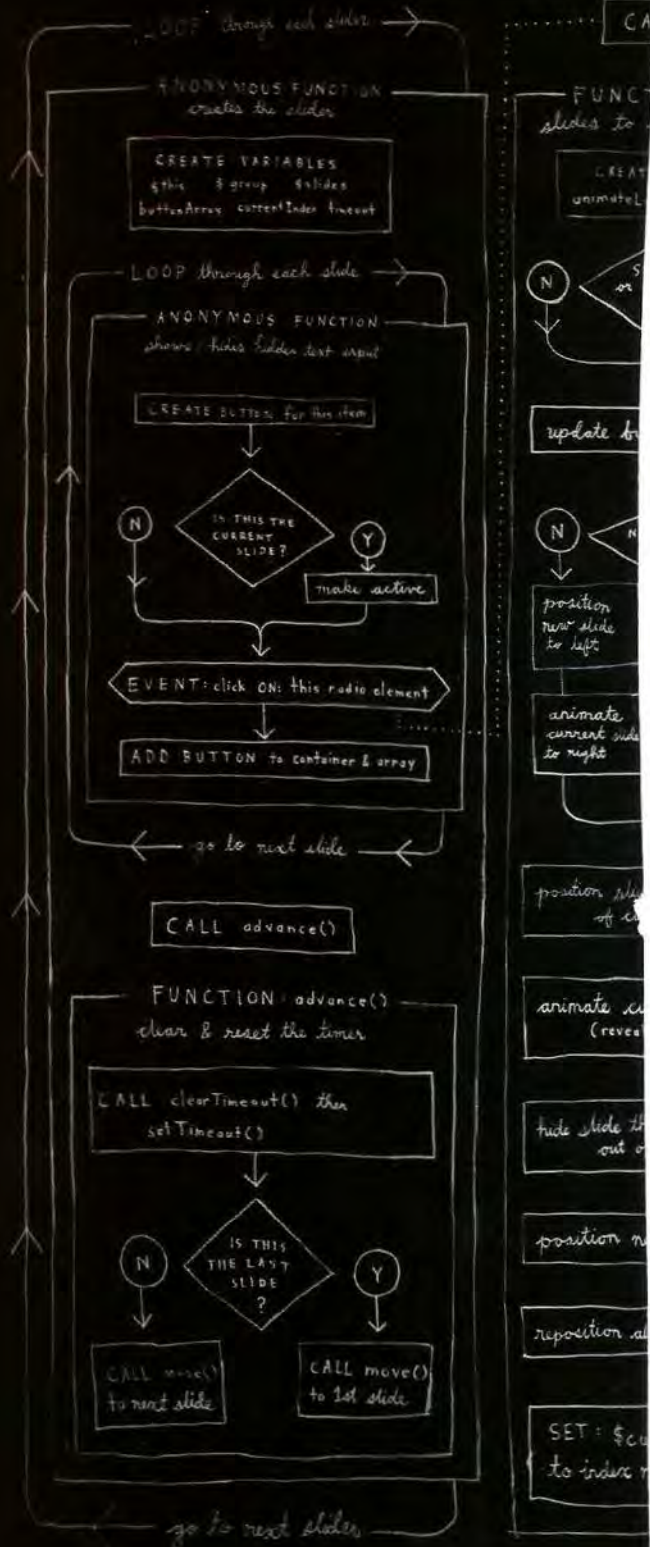 LOOP through each slider
ANONYMOUS FUNCTION
creates the slider
CREATE VARIABLES
$this $group $slides
buttonArray currentIndex timeout
LOOP through each slide
ANONYMOUS FUNCTION
shows/hides hidden text input
CREATE BUTTON for this item
IS THIS THE
CURRENT
SLIDE?
N
Y
make active
EVENT: click ON: this radio element
ADD BUTTON to container & array
go to next slide
CALL advance()
FUNCTION: advance()
clear & reset the timer
CALL clearTimeout() then
setTimeout()
IS THIS
THE LAST
SLIDE
?
N
Y
CALL move()
to next slide
CALL move()
to 1st slide
go to next slider
CA
FUNCT
slides to
CREAT
animateL
N
S
or
update bu
N
N
position
new slide
to left
animate
current slide
to right
position sli
of c
animate cu
(revea
hide slide th
out o
position n
reposition al
SET: $cu
to index n